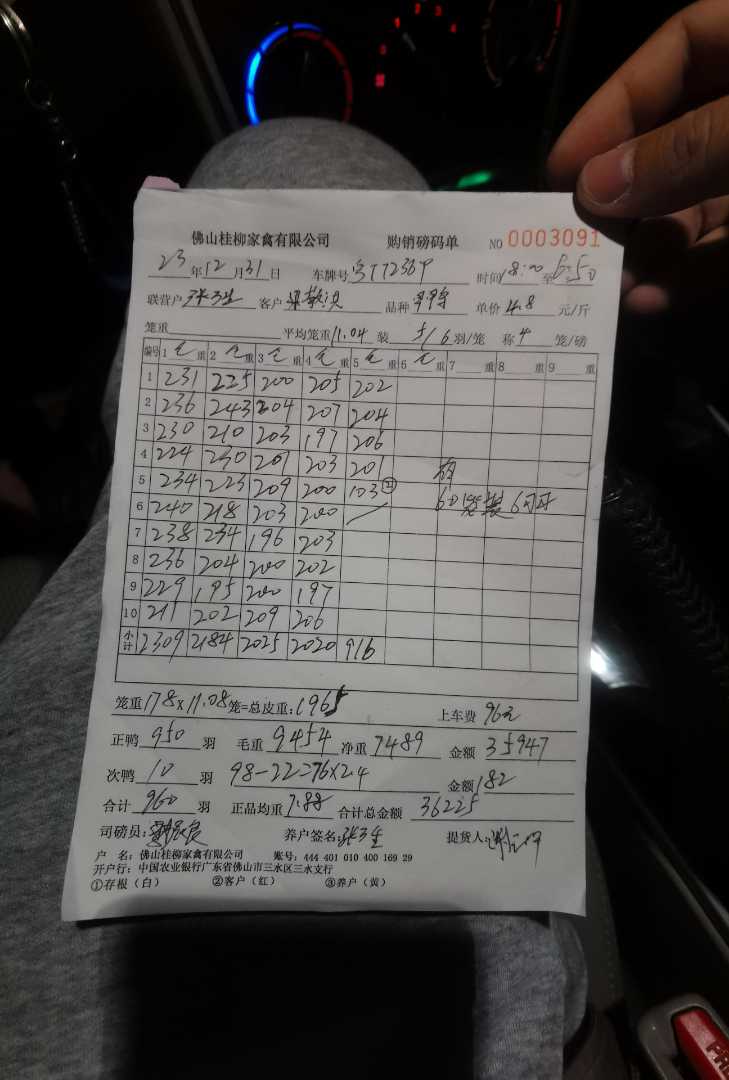 佛山桂柳家禽有限公司 购销磅码单 NO 0003091
23年12月31日 车牌号 时间18:00至6:50
联营户 张卫生 客户 品种 单价4.8元/斤
笼重 平均笼重11.04 装5/6羽/笼 称4笼/磅
编号 1 毛重 2 毛重 3 毛重 4 毛重 5 毛重 6 毛重 7 重 8 重 9 重
1 231 225 200 205 202
2 236 243 204 207 204
3 230 210 203 197 206
4 224 230 201 203 201
5 234 223 209 200 103②
6 240 218 203 200
60笼装6只
7 238 234 196 203
8 236 204 200 202
9 229 195 200 197
10 211 202 209 206
小计 2309 2184 2025 2020 916
笼重178×11.08笼=总皮重:1965 上车费96元
正鸭950羽 毛重9454净重7489 金额35947
次鸭10羽 98-22=76×2.4 金额182
合计960羽 正品均重7.88 合计总金额36225
司磅员: 养户签名:张卫生 提货人:
户 名:佛山桂柳家禽有限公司 账号:444 401 010 400 169 29
开户行:中国农业银行广东省佛山市三水区三水支行
①存根(白) ②客户(红) ③养户(黄)